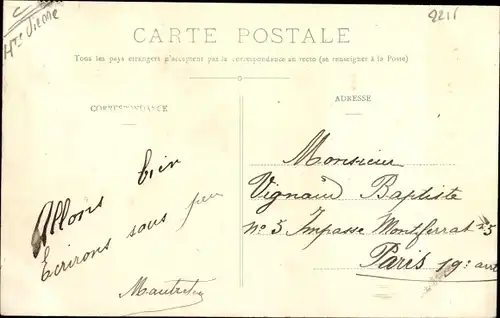 C
Hte Vienne
CARTE POSTALE
Tous les pays étrangers n'acceptent pas la correspondance au recto (se renseigner à la Poste)
CORRESPONDANCE
ADRESSE
Allons bien
Écrirons sous peu
Monsieur
Vignaud Baptiste
n° 5 Impasse Montferrat
Paris 19e arrt